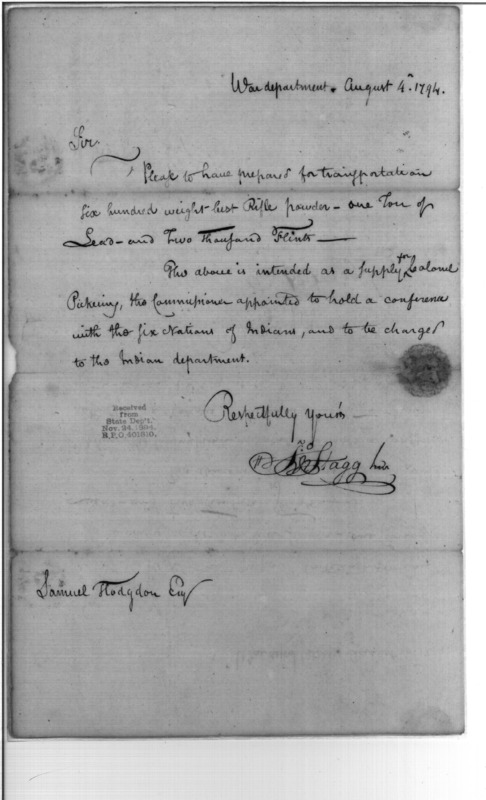 War department. August 4th. 1794.
Sir
Please to have prepared for transportation
six hundred weight best Rifle powder - one Ton of
Lead - and Two Thousand Flints —
The above is intended as a supply for Colonel
Pickering, the Commissioner appointed to hold a conference
with the six Nations of Indians, and to be charged
to the Indian department.
Received
from
State Dep't.
Nov. 24, 1904.
R.P.O. 401810.
Respectfully Yours
Jno Stagg Junr
Samuel Hodgdon Esqr